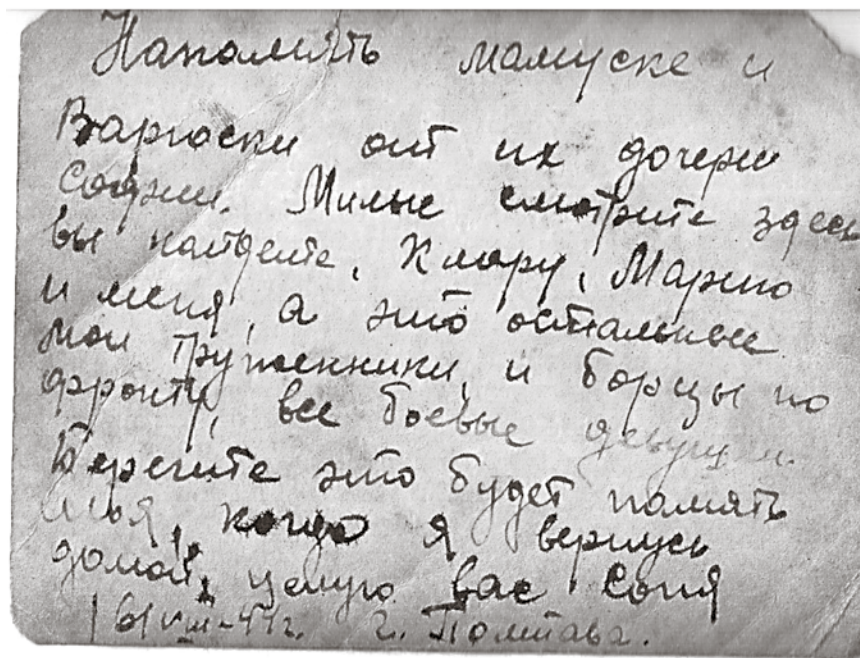 Напомять мамуске и
Варюски от их дочери
Софии. Милые смотрите здесь
вы найдете, Клару, Марию
и меня, а это остальные
мои труженники, и борцы по
фронту, все боевые девушки.
Берегите это будет память
моя, когда я вернусь
домой, целую вас Соня
г. Полтава.